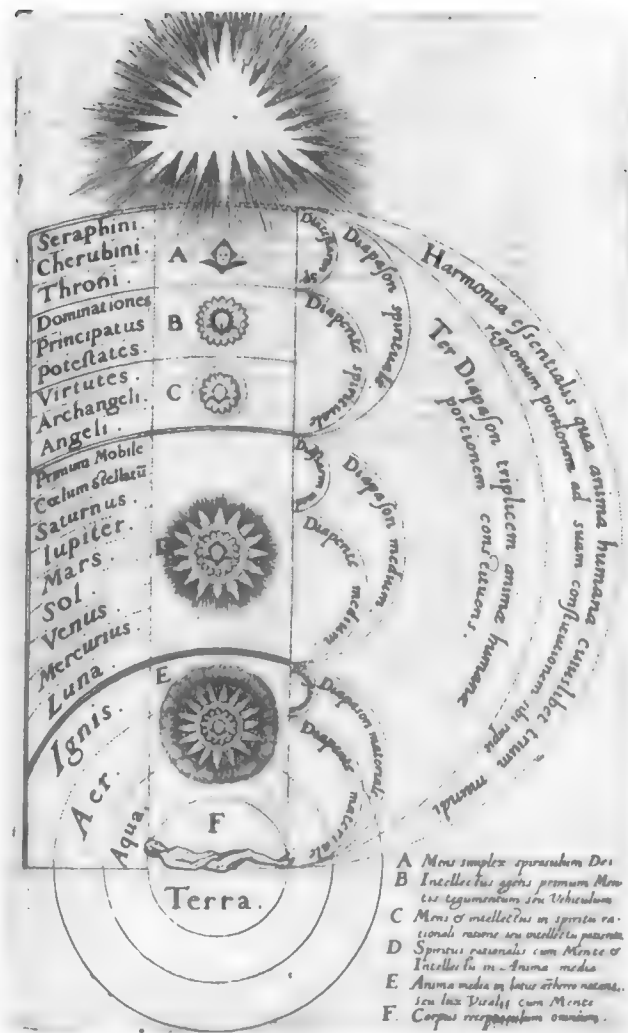 Seraphini.
Cherubini.
Throni.
Dominationes
Principatus
Potestates.
Virtutes.
Archangeli.
Angeli.
Primum Mobile
Cœlum stellatū
Saturnus.
Iupiter.
Mars.
Sol.
Venus.
Mercurius.
Luna.
Ignis.
Aer.
Aqua.
Terra.
A
B
C
E
F
Diapason spirituale
Diapente spirituale
Diapason medium
Diapente medium
Diapason materiale
Diapente materiale
Harmonia essentialis qua anima humana cuiuslibet trium
regionum portionem ad suam constitutionem sibi rapit
mundi
Ter Diapason triplicem animæ humanæ
portionem constituens.
A Mens simplex spiraculum Dei
B Intellectus agens primum Men
tis tegumentum seu Vehiculum
C Mens & intellectus in spiritu ra-
tionali ratione seu intellectu patiente
D Spiritus rationalis cum Mente &
Intellectu in Anima media
E Anima media in latice æthereo natans,
seu lux Vitalis cum Mente
F. Corpus receptaculum omnium.